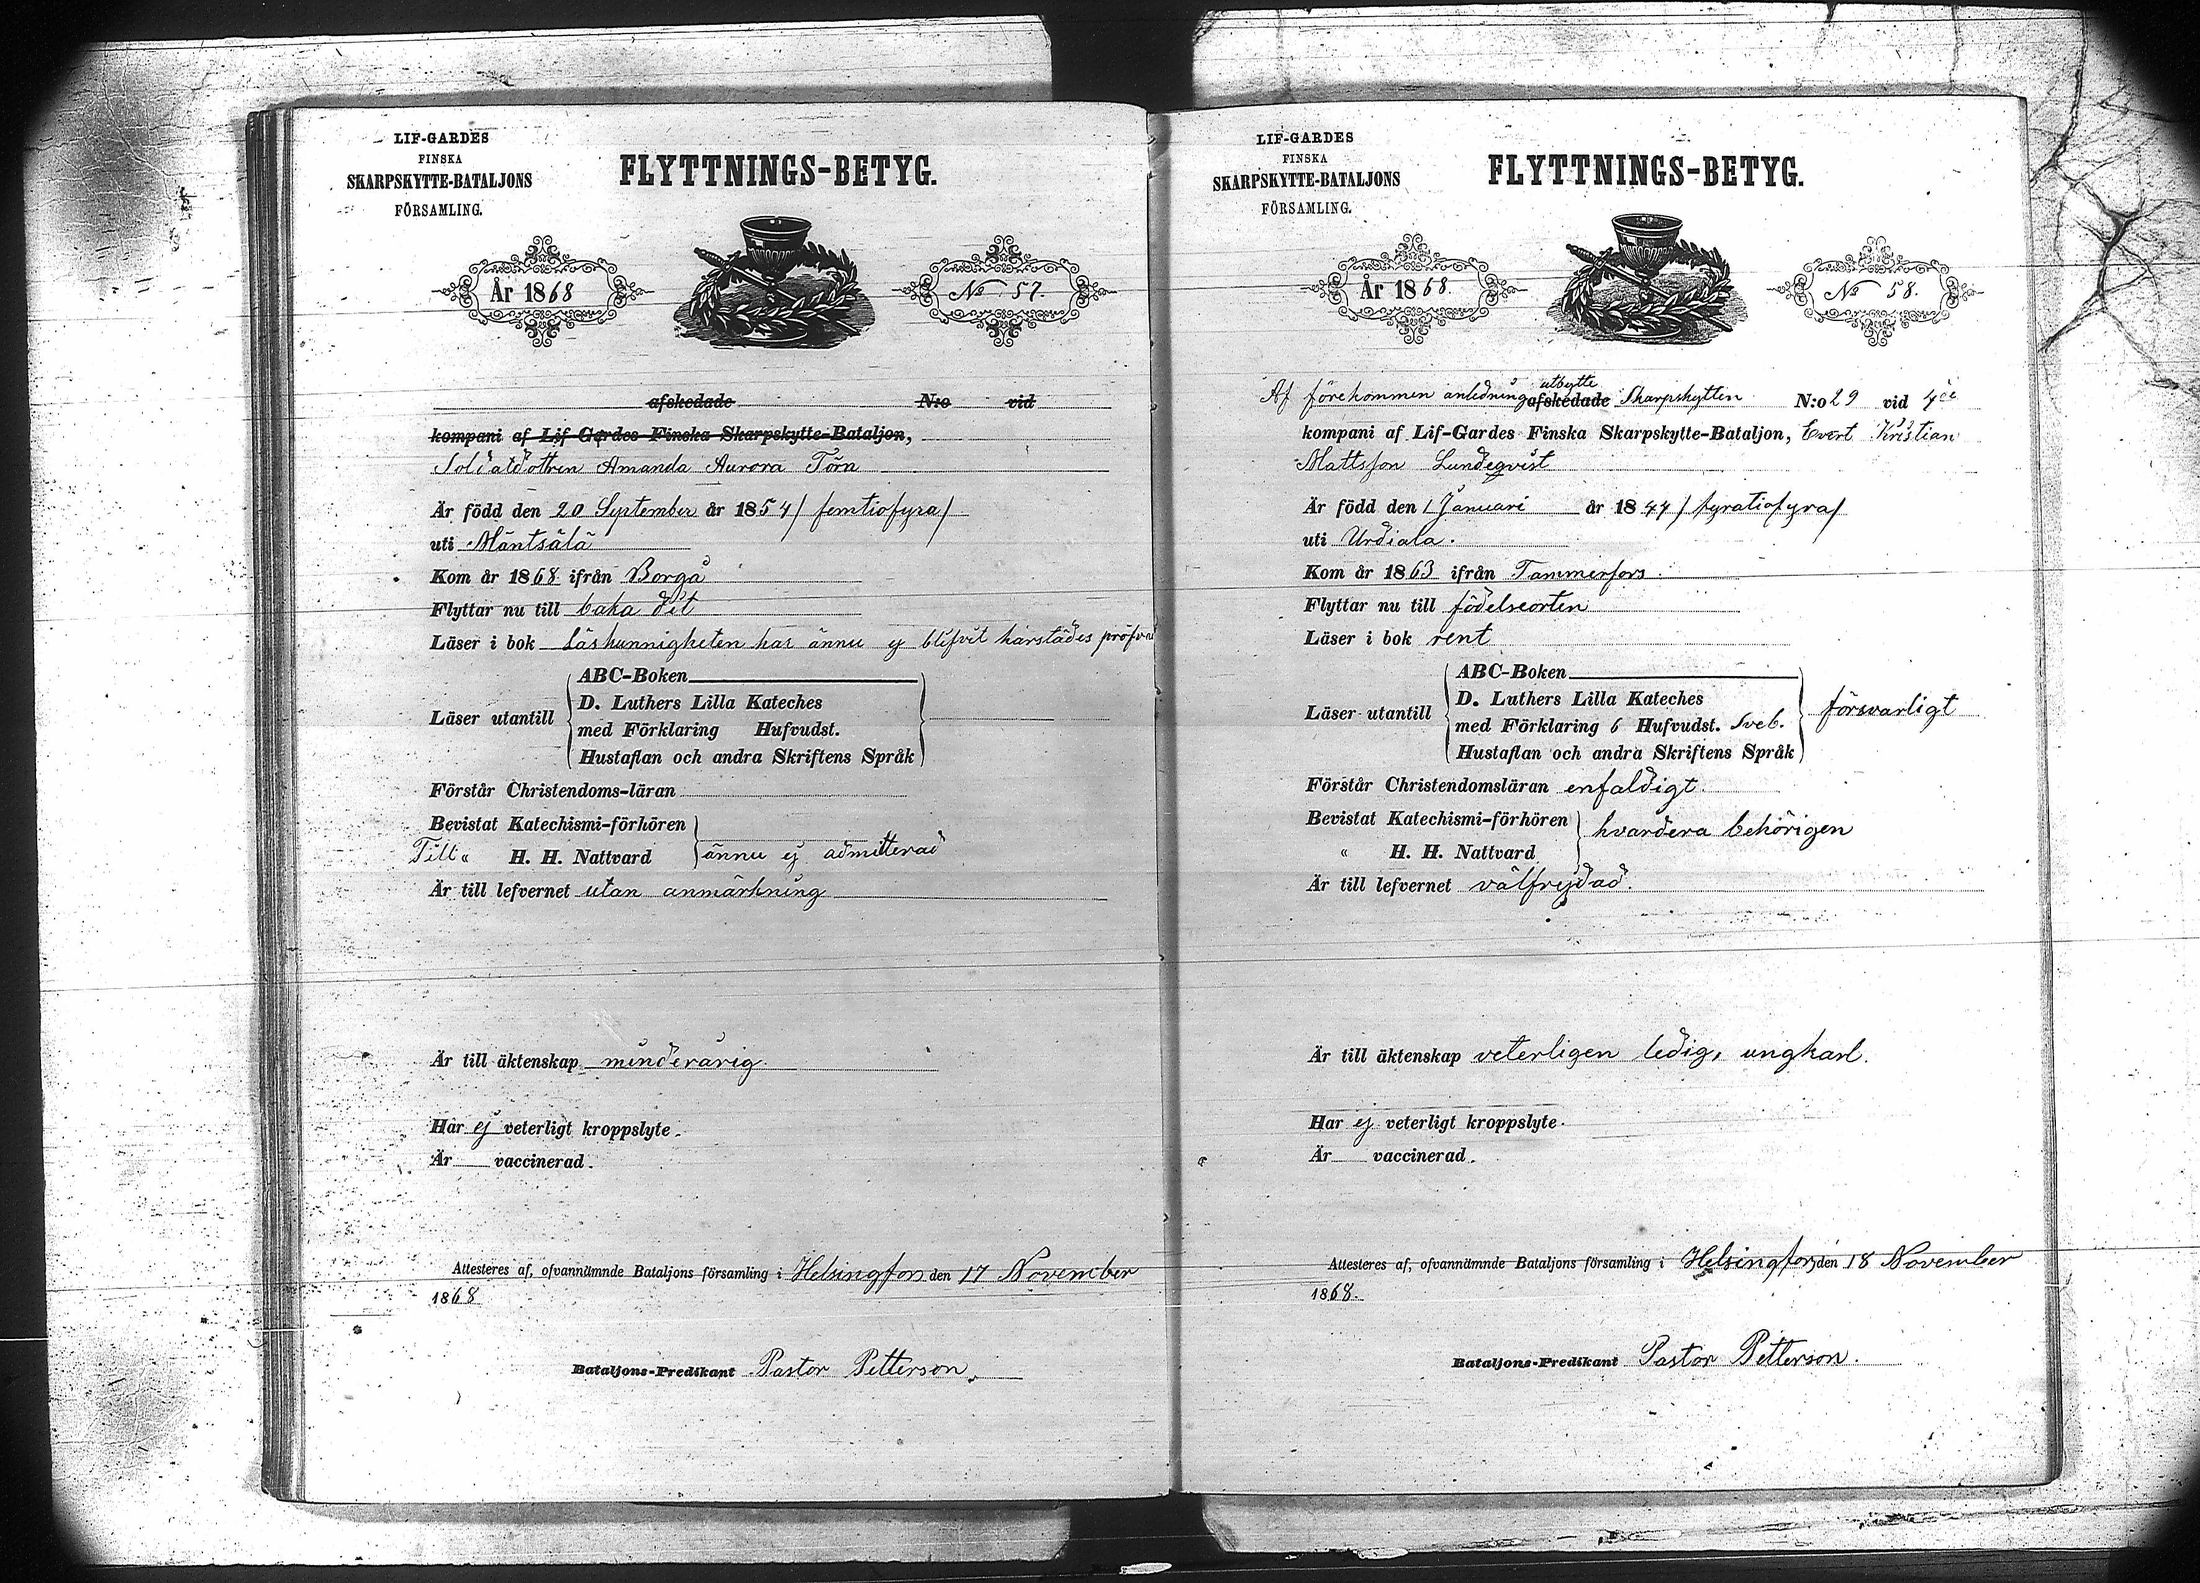 LIF-GARDES
FINSKA
SKARPSKYTTE-BATALJONS
FÖRSAMLING.
FLYTTNINGS-BETYG.
År 1868
No 57.
afskedade N:o vid
kompani af Lif-Gardes Finska Skarpskytte-Bataljon,
Soldatdottren Amanda Aurora Törn
Är född den 20 September år 1854 / femtiofyra /
uti Mäntsälä
Kom år 1868 ifrån Borgå
Flyttar nu till baka dit
Läser i bok Läskunnigheten har ännu ej blifvit härstädes pröfvad
ABC-Boken
D. Luthers Lilla Kateches
Läser utantill
med Förklaring Hufvudst.
Hustaflan och andra Skriftens Språk
Förstår Christendoms-läran
Bevistat Katechismi-förhören
Till " H. H. Nattvard ännu ej admitterad
Är till lefvernet utan anmärkning
Är till äktenskap minderårig.
Har ej veterligt kroppslyte.
Är vaccinerad.
Attesteres af, ofvannämnde Bataljons församling i Helsingfors den 17 November
1868
Bataljons-Predikant Pastor Petterson.
LIF-GARDES
FINSKA
SKARPSKYTTE-BATALJONS
FÖRSAMLING.
FLYTTNINGS-BETYG.
År 1868.
No 58.
utbytte
Af förekommen anledning afskedade Skarpskytten N:o 29 vid 4de
kompani af Lif-Gardes Finska Skarpskytte-Bataljon, Evert Kristian
Mattsson Lundeqvist
Är född den 1 Januari år 1844 / fyratiofyra /
uti Urdiala.
Kom år 1863 ifrån Tammerfors.
Flyttar nu till födelseorten
Läser i bok rent
ABC-Boken
D. Luthers Lilla Kateches
Läser utantill försvarligt
med Förklaring 6 Hufvudst. Sveb.
Hustaflan och andra Skriftens Språk
Förstår Christendomsläran enfaldigt.
Bevistat Katechismi-förhören hvardera behörigen
" H. H. Nattvard
Är till lefvernet välfrejdad.
Är till äktenskap veterligen ledig, ungkarl.
Har ej veterligt kroppslyte.
Är vaccinerad.
Attesteres af, ofvannämnde Bataljons församling i Helsingfors, den 18 November
1868.
Bataljons-Predikant Pastor Petterson.